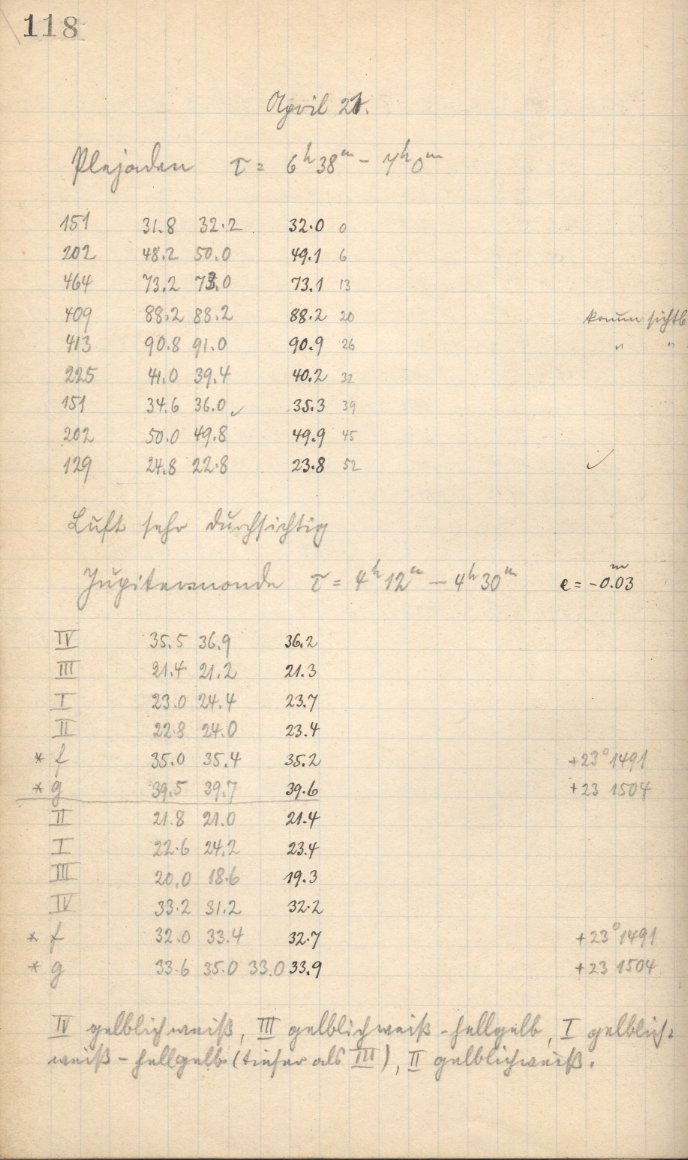 118
April 21.
Plejaden τ = 6h 38m – 7h 0m
151 31.8 32.2 32.0 0
202 48.2 50.0 49.1 6
464 73.2 73.0 73.1 13
409 88.2 88.2 88.2 20 kaum sichtb
413 90.8 91.0 90.9 26 " "
225 41.0 39.4 40.2 32
151 34.6 36.0 ✓ 35.3 39
202 50.0 49.8 49.9 45
129 24.8 22.8 23.8 52 ✓
Luft sehr durchsichtig
Jupitersmonde τ = 4h 12m – 4h 30m e = -0.03m
IV 35.5 36.9 36.2
III 21.4 21.2 21.3
I 23.0 24.4 23.7
II 22.8 24.0 23.4
* f 35.0 35.4 35.2 +23° 1491
* g 39.5 39.7 39.6 +23 1504
II 21.8 21.0 21.4
I 22.6 24.2 23.4
III 20.0 18.6 19.3
IV 33.2 31.2 32.2
* f 32.0 33.4 32.7 +23° 1491
* g 33.6 35.0 33.0 33.9 +23 1504
IV gelblichweiß, III gelblichweiß - hellgelb, I gelblich-
weiß - hellgelb (tiefer als III), II gelblichweiß.